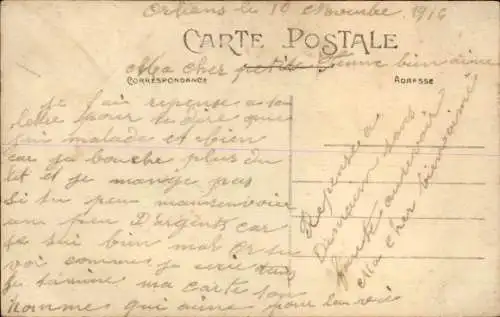 Orléans le 10 Novembre 1916
CARTE POSTALE
Ma cher petite femme bien aimé
CORRESPONDANCE
ADRESSE
je fai reponse a ta
lettre pour te dire que
sui malade et bien
car je bouche plus du
lit et je mange pas
si tu peu manvenvoie
un peu D'argents car
je sui bien mal
voi comme je
je termine ma carte ton
homme qui aime pour la vie
Reponse a
Demain sans
faute au revoir
Ma cher bien aimé